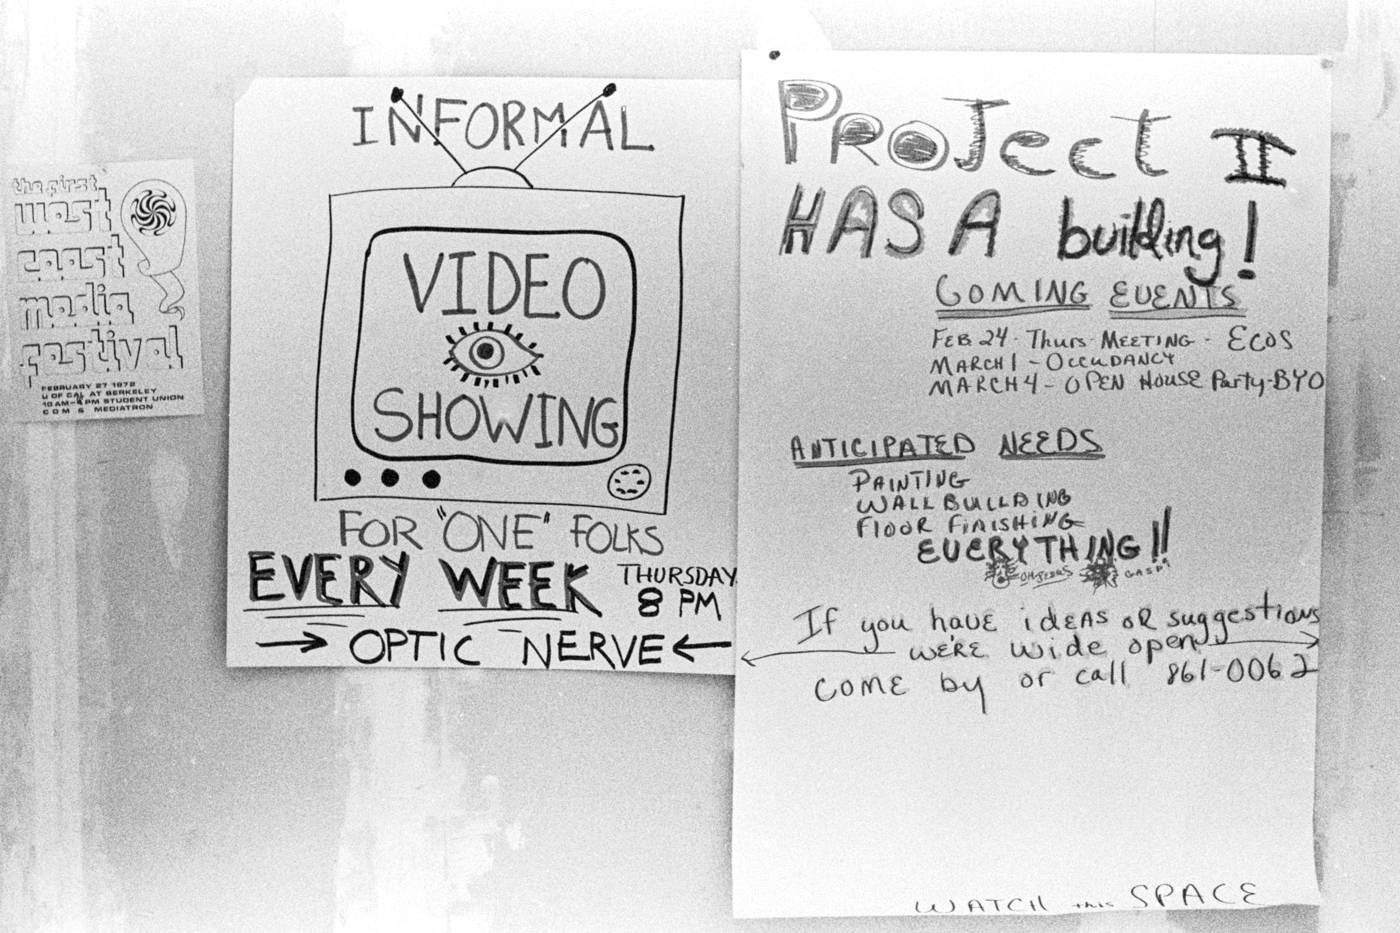 the first
west
coast
media
festival
FEBRUARY 27 1972
U OF CAL AT BERKELEY
10 AM-4 PM STUDENT UNION
COM & MEDIATRON
INFORMAL
VIDEO
SHOWING
FOR "ONE" FOLKS
EVERY WEEK THURSDAY
8 PM
OPTIC NERVE
PROJECT II
HAS A building!
COMING EVENTS
FEB 24 - Thurs - MEETING - ECOS
MARCH 1 - OCCUDANCY
MARCH 4 - OPEN HOUSE Party-BYO
ANTICIPATED NEEDS
PAINTING
WALL BUILLDING
FLOOR FINISHING
EVERYTHING!!
OH JESUS GASP!
If you have idEAS oR suggestions
WE'RE wide open
COME by or call 861-0062
WATCH this SPACE